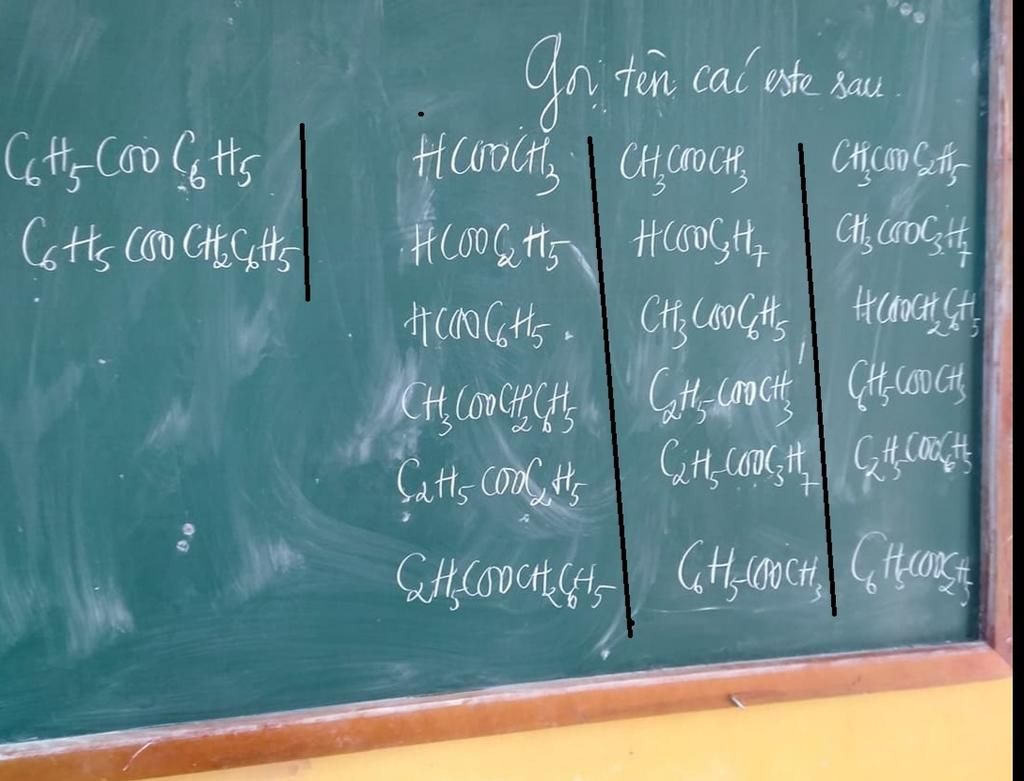 Gọi tên các este sau
C6H5-COOC6H5
C6H5COOCH2C6H5
HCOOCH3
HCOOC2H5
HCOOC6H5
CH3COOCH2C6H5
C2H5-COOC2H5
C2H5COOCH2C6H5
CH3COOCH3
HCOOC3H7
CH3COOC6H5
C2H5-COOCH3
C2H5-COOC3H7
C6H5-COOCH3
CH3COOC2H5
CH3COOC3H7
HCOOCH2C6H5
C6H5-COOCH3
C2H5COOC6H5
C6H5-COOC2H5